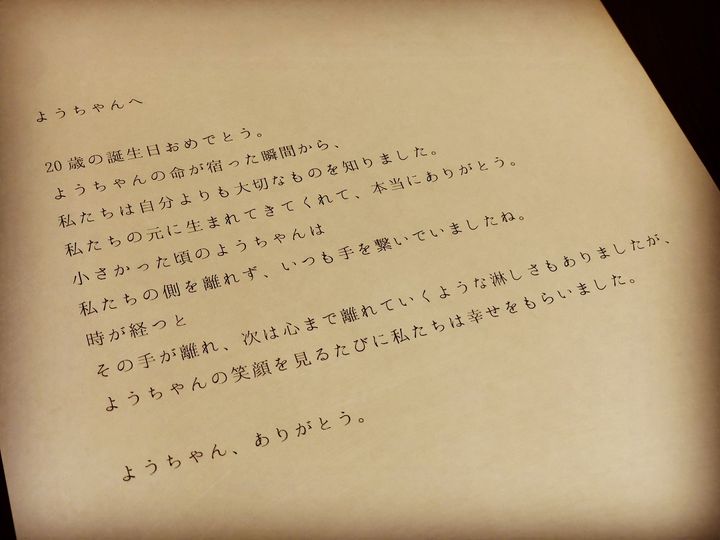 ようちゃんへ
20歳の誕生日おめでとう。
ようちゃんの命が宿った瞬間から、
私たちは自分よりも大切なものを知りました。
私たちの元に生まれてきてくれて、本当にありがとう。
小さかった頃のようちゃんは
私たちの側を離れず、いつも手を繋いでいましたね。
時が経つと
その手が離れ、次は心まで離れていくような淋しさもありましたが、
ようちゃんの笑顔を見るたびに私たちは幸せをもらいました。
ようちゃん、ありがとう。